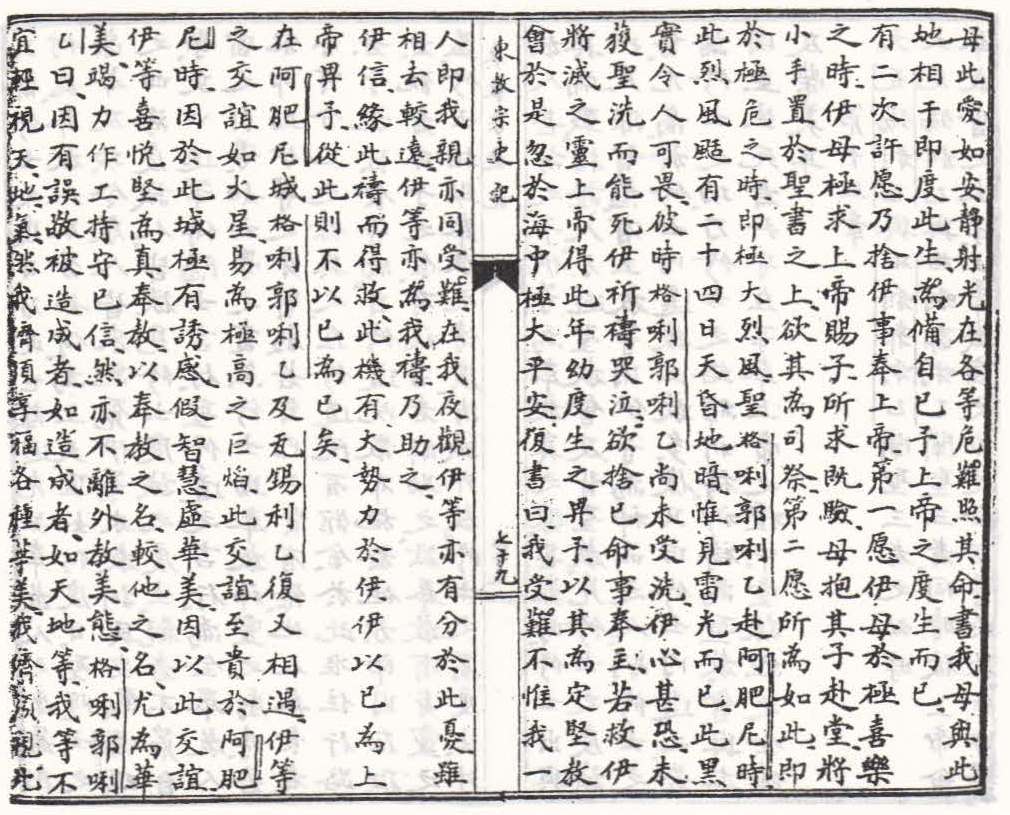 母此愛如安靜射光在各等危難照其命書我母與此
地相于即度此生為備自己子上帝之度生而已
有二次許愿乃捨伊事奉上帝第一愿伊母於極喜樂
之時伊母極求上帝賜子所求既驗母抱其子赴堂將
小手置於聖書之上欲其為司祭第二愿所為如此即
於極危之時即極大烈風聖格唎郭唎乙赴阿肥尼時
此烈風颳有二十四日天昏地暗惟見雷光而已此黑
實令人可畏彼時格唎郭唎乙尚未受洗伊心甚恐未
獲聖洗而能死伊祈禱哭泣欲捨己命事奉主若救伊
將滅之靈上帝得此年幼度生之畀予以其為定堅教
會於是忽於海中極大平安復書曰我受難不惟我一
東教宗史記
七十九
人即我親亦同受難在我夜觀伊等亦有分於此憂雖
相去較遠伊等亦為我禱乃助之
伊信緣此禱而得救此機有大勢力於伊伊以已為上
帝畀子從此則不以已為已矣
在阿肥尼城格唎郭唎乙及瓦錫利乙復又相遇伊等
之交誼如火星易為極高之巨焰此交誼至貴於阿肥
尼時因於此城極有誘惑假智慧虛華美因以此交誼
伊等喜悅堅為真奉教以奉教之名較他之名尤為華
美竭力作工持守已信然亦不離外教美態格唎郭唎
乙曰因有誤敬被造成者如造成者如天地等我等不
宜輕視天地氣然我儕須享福各種華美我儕